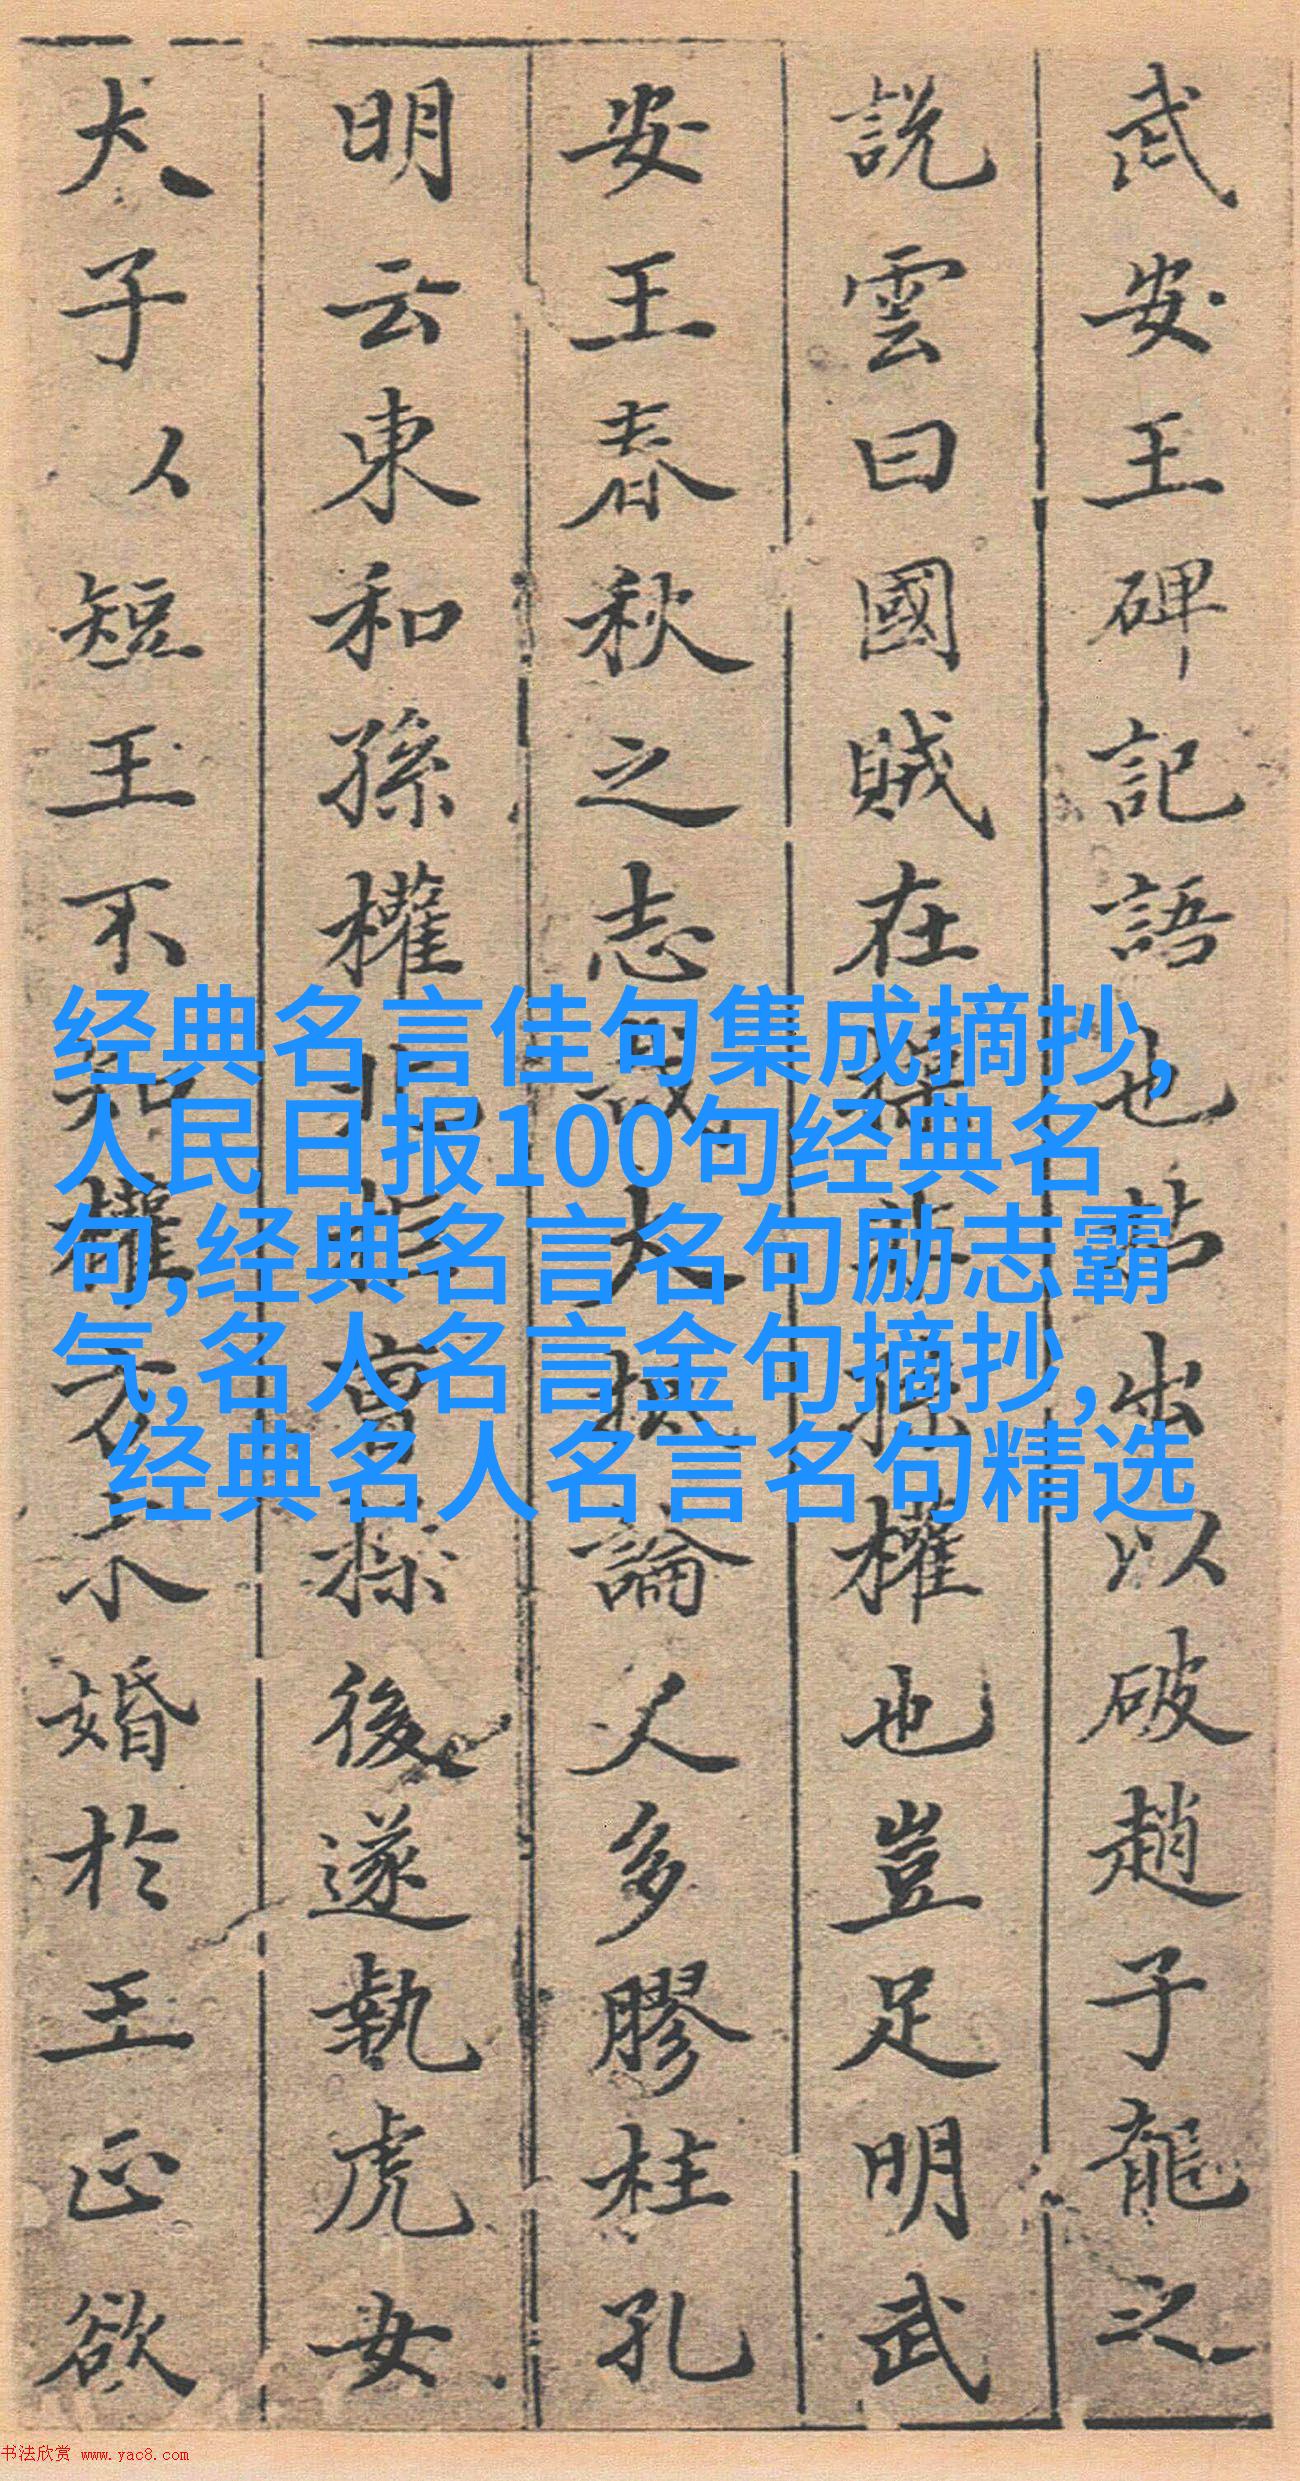 武安王碑記語也拈出以破趙子龍之
說雲曰國賊在操非孫權也豈足明武
安王春秋之志哉大抵論人多膠柱孔
明云東和孫權北拒曹操後遂執虎女
犬子以短王不知權方求婚於王正欲
经典名言佳句集成摘抄,
人民日报100句经典名
句,经典名言名句励志霸
气,名人名言金句摘抄,
经典名人名言名句精选
书法欣赏 www.yac8.com